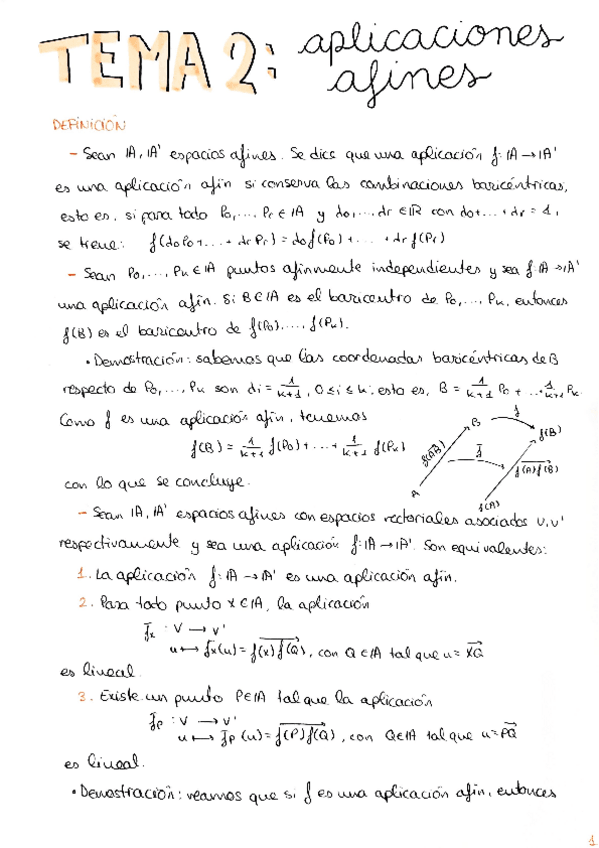 TEMA 2: aplicaciones
afines
DEFINICIÓN
- Sean 𝔸, 𝔸' espacios afines. Se dice que una aplicación f: 𝔸 → 𝔸'
es una aplicación afín si conserva las combinaciones baricéntricas,
esto es, si para todo P₀,..., Pr ∈ 𝔸 y α₀,...αr ∈ ℝ con α₀+...+αr = 1,
se tiene: f(α₀P₀+...+αrPr) = α₀f(P₀)+...+αrf(Pr)
- Sean P₀,..., Pk ∈ 𝔸 puntos afínmente independientes y sea f: 𝔸 → 𝔸'
una aplicación afín. Si B ∈ 𝔸 es el baricentro de P₀,..., Pk, entonces
f(B) es el baricentro de f(P₀),..., f(Pk).
• Demostración: sabemos que las coordenadas baricéntricas de B
respecto de P₀,..., Pk son αi = 1/k+1, 0≤i≤k, esto es, B = 1/k+1 P₀ + ...+ 1/k+1 Pk.
Como f es una aplicación afín, tenemos
f(B) = 1/k+1 f(P₀)+...+ 1/k+1 f(Pk)
B
f
f(B)
f(AB)
f̄
f(A)f(B)
A
f(A)
con lo que se concluye.
- Sean 𝔸, 𝔸' espacios afines con espacios vectoriales asociados V, V'
respectivamente y sea una aplicación f: 𝔸 → 𝔸'. Son equivalentes:
1. La aplicación f: 𝔸 → 𝔸' es una aplicación afín.
2. Para todo punto X ∈ 𝔸, la aplicación
f̄x : V → V'
u ↦ f̄x(u) = f(x)f(Q), con Q ∈ 𝔸 tal que u = XQ
es lineal.
3. Existe un punto P ∈ 𝔸 tal que la aplicación
f̄p : V → V'
u ↦ f̄p(u) = f(P)f(Q), con Q ∈ 𝔸 tal que u = PQ
es lineal.
• Demostración: veamos que si f es una aplicación afín, entonces
1